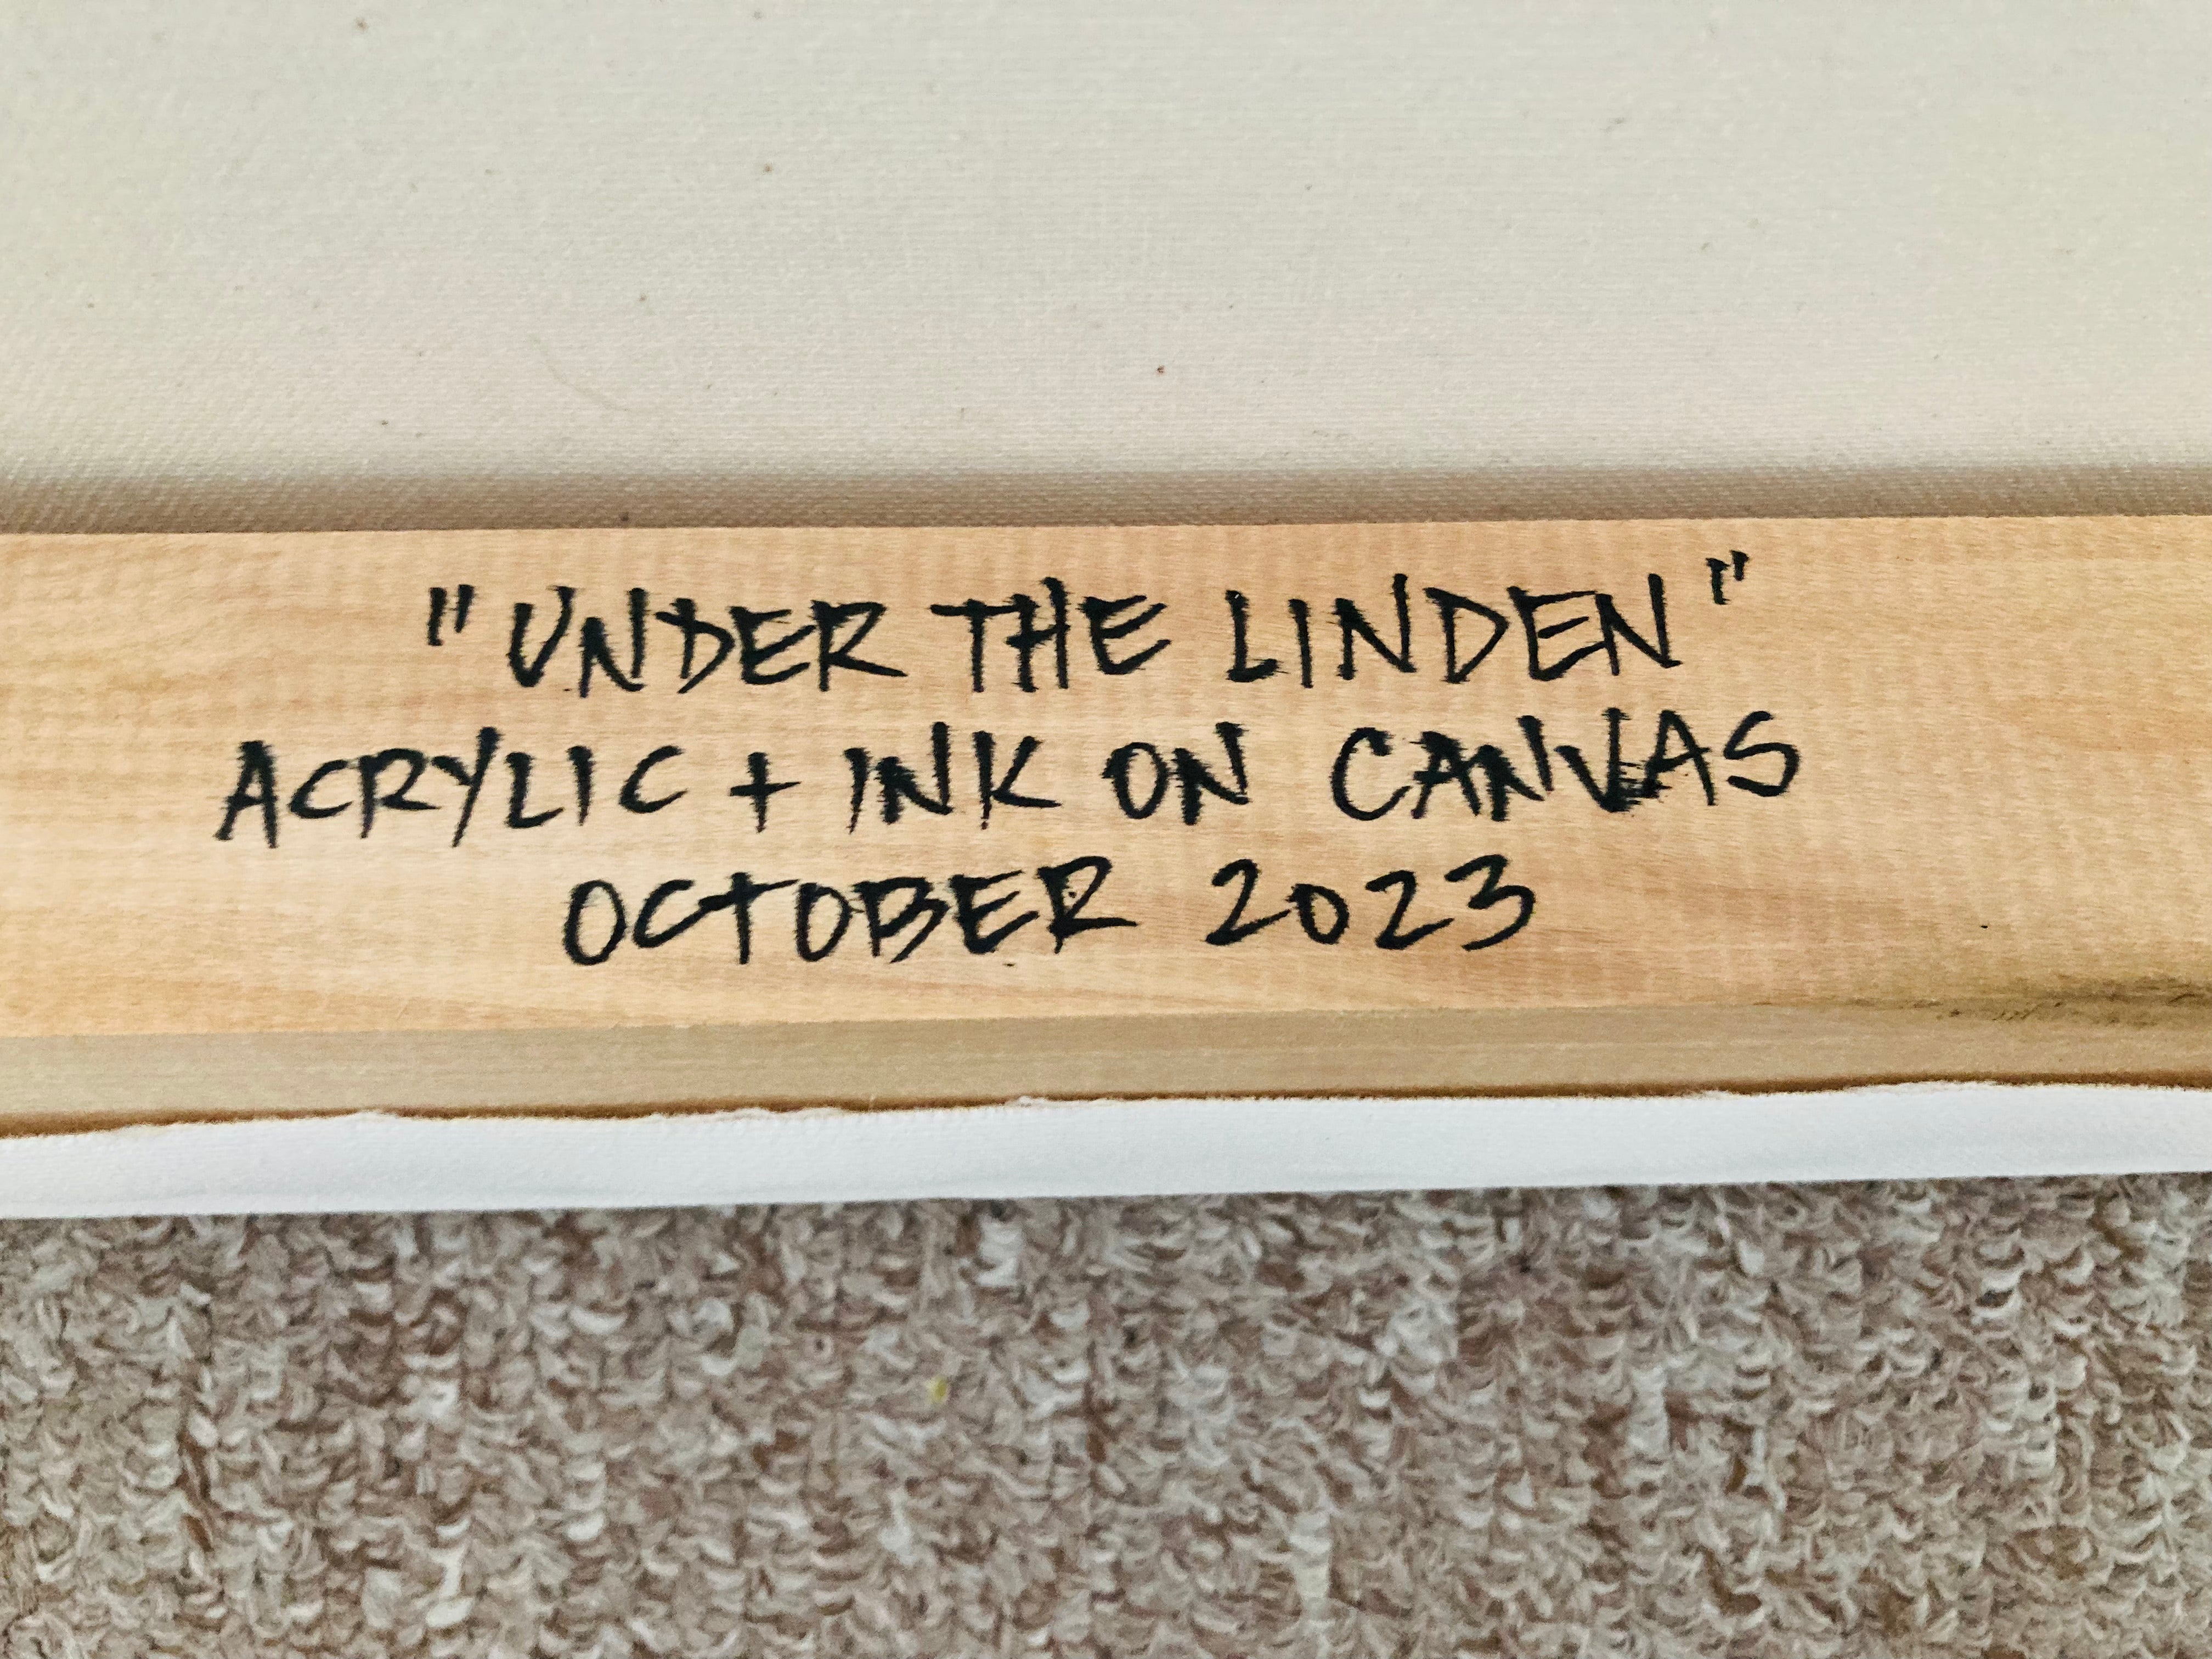 "UNDER THE LINDEN"
ACRYLIC + INK ON CANVAS
OCTOBER 2023